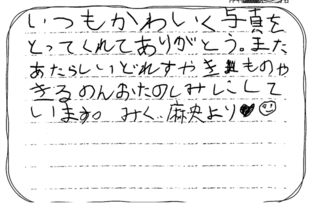 いつもかわいく写真を
とってくれてありがとう。また
あたらしいどれすやきものや
きるのんおたのしみにして
います。みく、麻央より♥☺